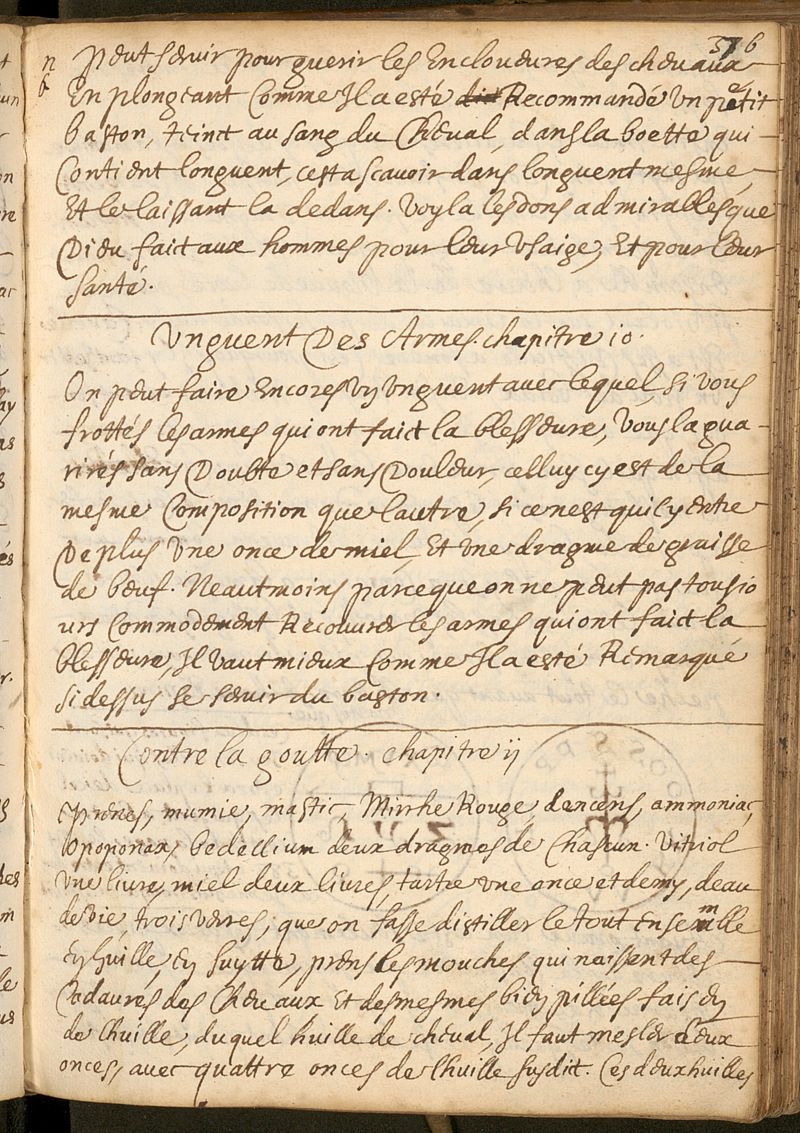 376
n peut servir pour guerir les Encloueures des chevaux
b En plongeant Comme Il a esté dit Recommandé Un petit
baston, teinct au sang du Cheval, dans la boette qui
Contient longuent, cest a scavoir dans longuent mesme
Et le laissant la dedans. Voyla les dons admirables que
Dieu faict aux hommes pour leur Usaige, Et pour leur
santé.
Vnguent Des Armes. chapitre 10.
On peut faire Encores Vn Vnguent avec lequel, si vous
frottés les armes qui ont faict la blesseure, Vous la gua-
rirés sans Doubte et sans Douleur, celluy cy est de la
mesme Composition que lautre, si ce nest quil y entre
De plus Vne once de miel, Et Vne dragme de graisse
de bœuf. Neautmoins parce que on ne peut pas tousio
urs Commodement Recouvrer les armes qui ont faict la
blesseure, Il vaut mieux Comme Il a esté Remarqué
si dessus se servir du baston.
Contre la goutte. chapitre ij
Prenes, mumie, mastic, Mirrhe Rouge, dencens, ammoniac,
Opoponax, bedellium deux dragmes de Chascun. Vitriol
Vne livre, miel deux livres, tartre Vne once et demy, deau
de vie, trois verres, que on fasse distiller le tout ensemble
En huille, En suytte, prens les mouches qui naissent des
Cadavres des Chevaux Et des mesmes bien pillées fais En
de lhuille, duquel huille de cheval, Il faut mesler deux
onces, avec quattre onces de lhuille susdit. Ces deux huilles